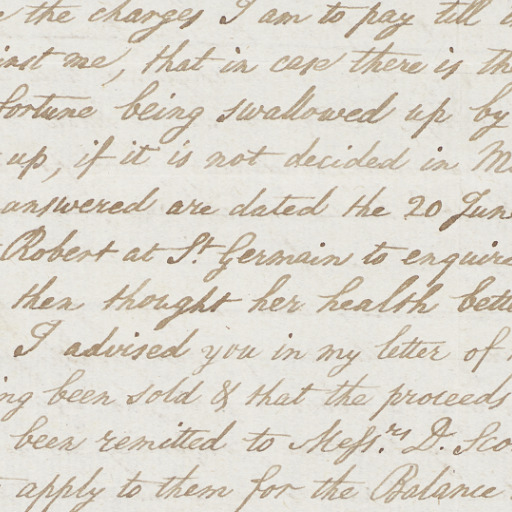 the charges I am to pay till
inst me, that in case there is th
fortune being swallowed up by
up, if it is not decided in M
answered are dated the 20 June
Robert at St Germain to enquire
then thought her health bette
I advised you in my letter of
ng been sold & that the proceeds
been remitted to Mess.rs D. Sco
apply to them for the Balance